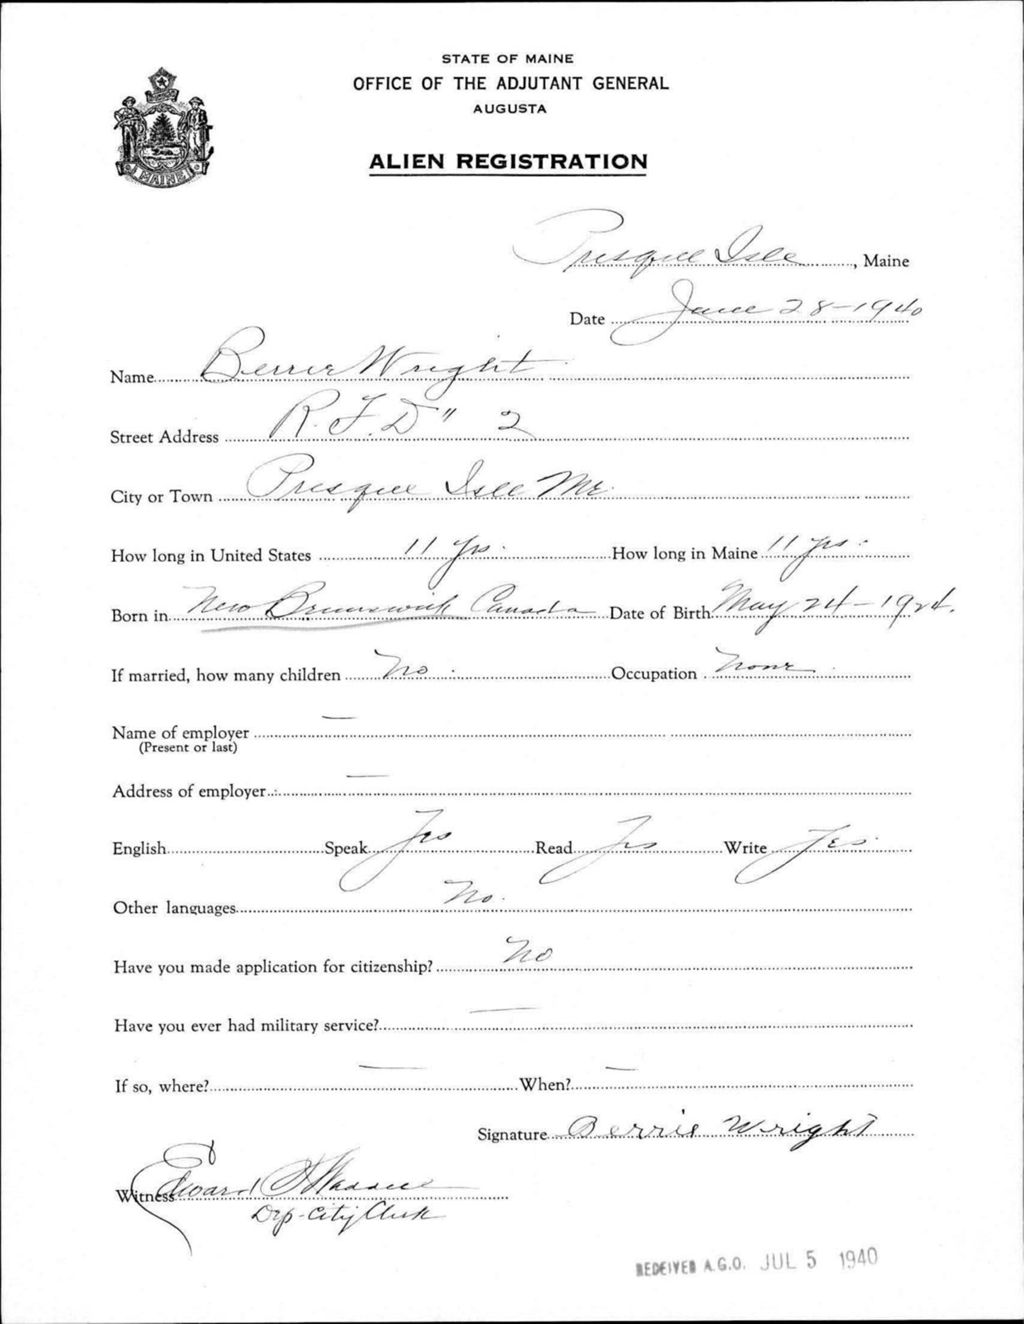 STATE OF MAINE
OFFICE OF THE ADJUTANT GENERAL
AUGUSTA
MAINE
ALIEN REGISTRATION
Presque Isle, Maine
Date June 28-1940
Name Berrie Wright
Street Address R.F.D " 2
City or Town Presque Isle Me.
How long in United States 11 Yrs. How long in Maine 11 yrs.
Born in New Brunswick Canada Date of Birth May 24-1924.
If married, how many children No. Occupation None
Name of employer —
(Present or last)
Address of employer —
English Speak Yes Read Yes Write Yes.
Other languages No.
Have you made application for citizenship? No
Have you ever had military service? —
If so, where? — When? —
Signature Berrie Wright
Witness Edward
Dep-City Clerk
RECEIVED A.G.O. JUL 5 1940